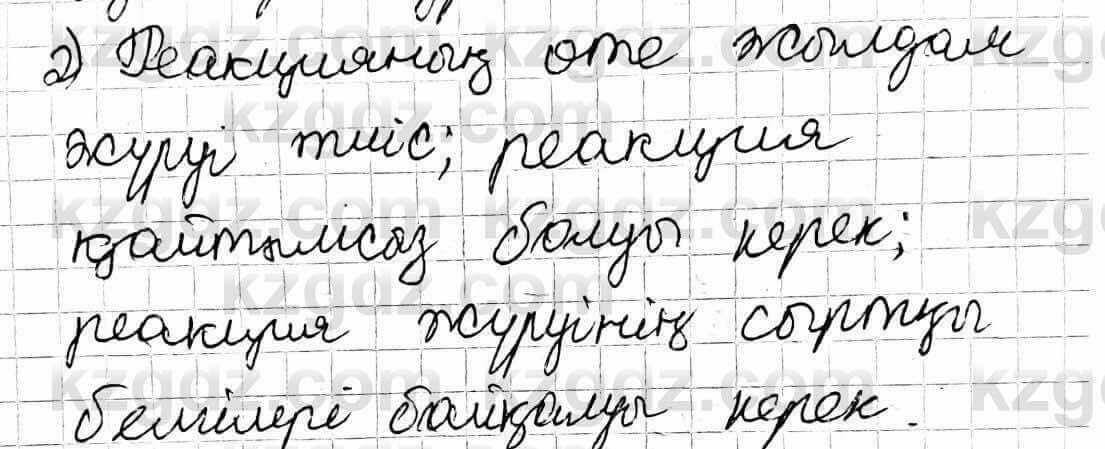 2) Реакцияның өте жылдам
жүруі тиіс; реакция
қайтымсыз болуы керек;
реакция жүруінің сыртқы
белгілері байқалуы керек.